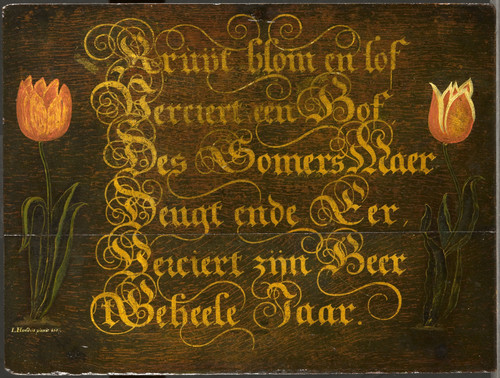 Krüÿt blom en lof
Verciert een Hof,
Des Somers Maer
Deugt ende Eer,
Verciert zijn Heer
tGeheele Jaar.